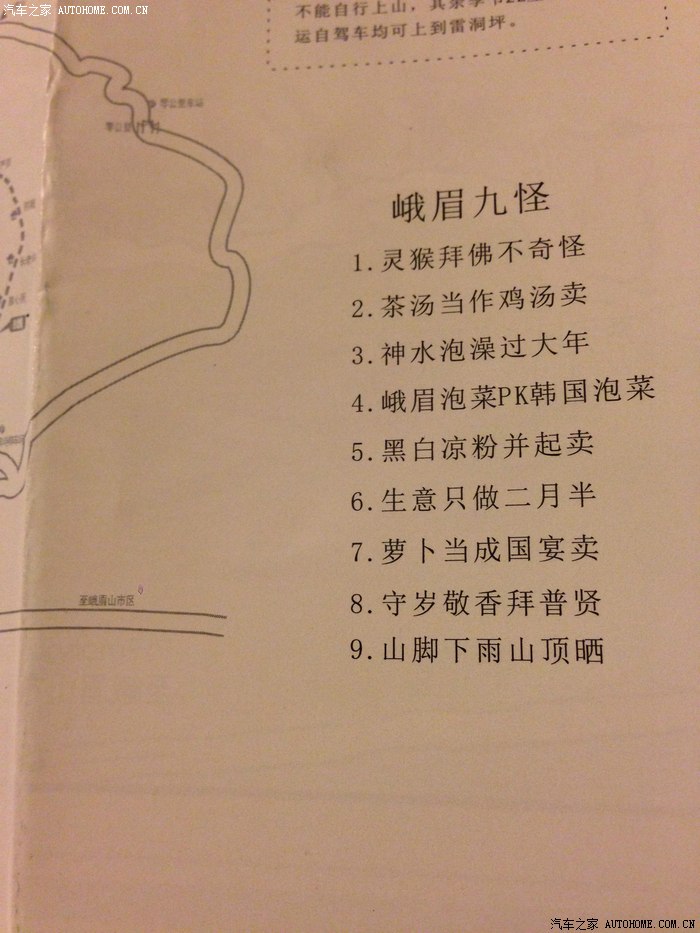 汽车之家 AUTOHOME.COM.CN
不能自行上山，其余季节
运自驾车均可上到雷洞坪。
零公里车站
零公里
峨眉九怪
1.灵猴拜佛不奇怪
2.茶汤当作鸡汤卖
3.神水泡澡过大年
4.峨眉泡菜PK韩国泡菜
5.黑白凉粉并起卖
6.生意只做二月半
7.萝卜当成国宴卖
8.守岁敬香拜普贤
9.山脚下雨山顶晒
至峨眉山市区
汽车之家 AUTOHOME.COM.CN